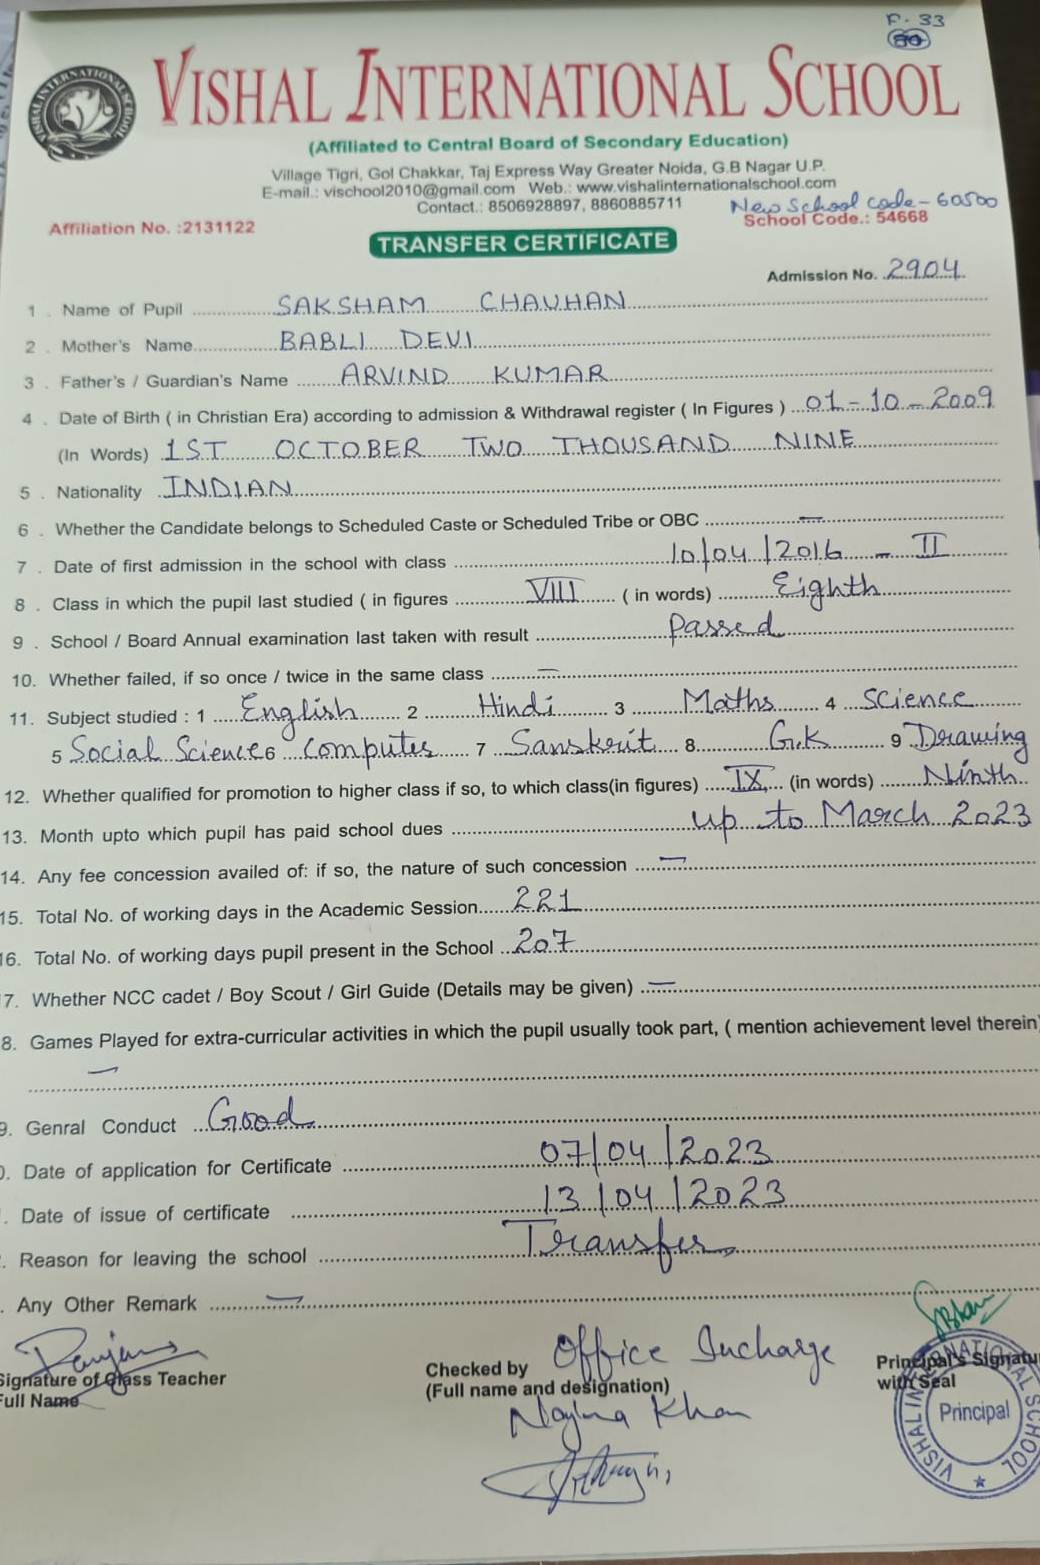 P. 33
VISHAL INTERNATIONAL SCHOOL
(Affiliated to Central Board of Secondary Education)
Village Tigri, Gol Chakkar, Taj Express Way Greater Noida, G.B Nagar U.P.
E-mail.: vischool2010@gmail.com Web.: www.vishalinternationalschool.com
Contact.: 8506928897, 8860885711
New School code - 60500
Affiliation No. :2131122 School Code.: 54668
TRANSFER CERTIFICATE
Admission No. 2904
1 . Name of Pupil SAKSHAM CHAUHAN
2 . Mother's Name BABLI DEVI
3 . Father's / Guardian's Name ARVIND KUMAR
4 . Date of Birth ( in Christian Era) according to admission & Withdrawal register ( In Figures ) 01-10-2009
(In Words) 1ST OCTOBER TWO THOUSAND NINE
5 . Nationality INDIAN
6 . Whether the Candidate belongs to Scheduled Caste or Scheduled Tribe or OBC —
7 . Date of first admission in the school with class 10/04/2016 - II
8 . Class in which the pupil last studied ( in figures VIII ( in words) Eighth
9 . School / Board Annual examination last taken with result Passed
10. Whether failed, if so once / twice in the same class —
11. Subject studied : 1 English 2 Hindi 3 Maths 4 Science
5 Social Science 6 Computer 7 Sanskrit 8. G.K 9 Drawing
12. Whether qualified for promotion to higher class if so, to which class(in figures) IX (in words) Ninth
13. Month upto which pupil has paid school dues up to March 2023
14. Any fee concession availed of: if so, the nature of such concession —
15. Total No. of working days in the Academic Session 221
16. Total No. of working days pupil present in the School 207
7. Whether NCC cadet / Boy Scout / Girl Guide (Details may be given) —
8. Games Played for extra-curricular activities in which the pupil usually took part, ( mention achievement level therein)
—
9. Genral Conduct Good
0. Date of application for Certificate 07/04/2023
. Date of issue of certificate 13/04/2023
. Reason for leaving the school Transfer
. Any Other Remark —
Signature of Class Teacher
Full Name
Checked by Office Incharge
(Full name and designation)
Nagma Khan
Principal's Signatu
with Seal
VISHAL INTERNATIONAL SCHOOL
Principal